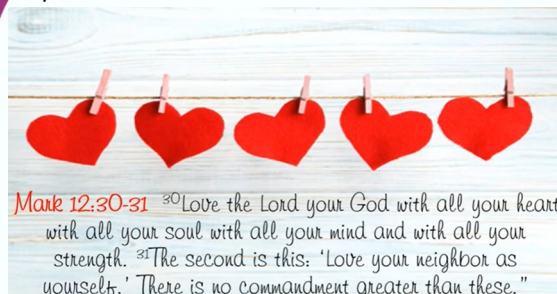 Mark 12:30-31 ³⁰Love the Lord your God with all your heart
with all your soul with all your mind and with all your
strength. ³¹The second is this: ‘Love your neighbor as
yourself.’ There is no commandment greater than these.”